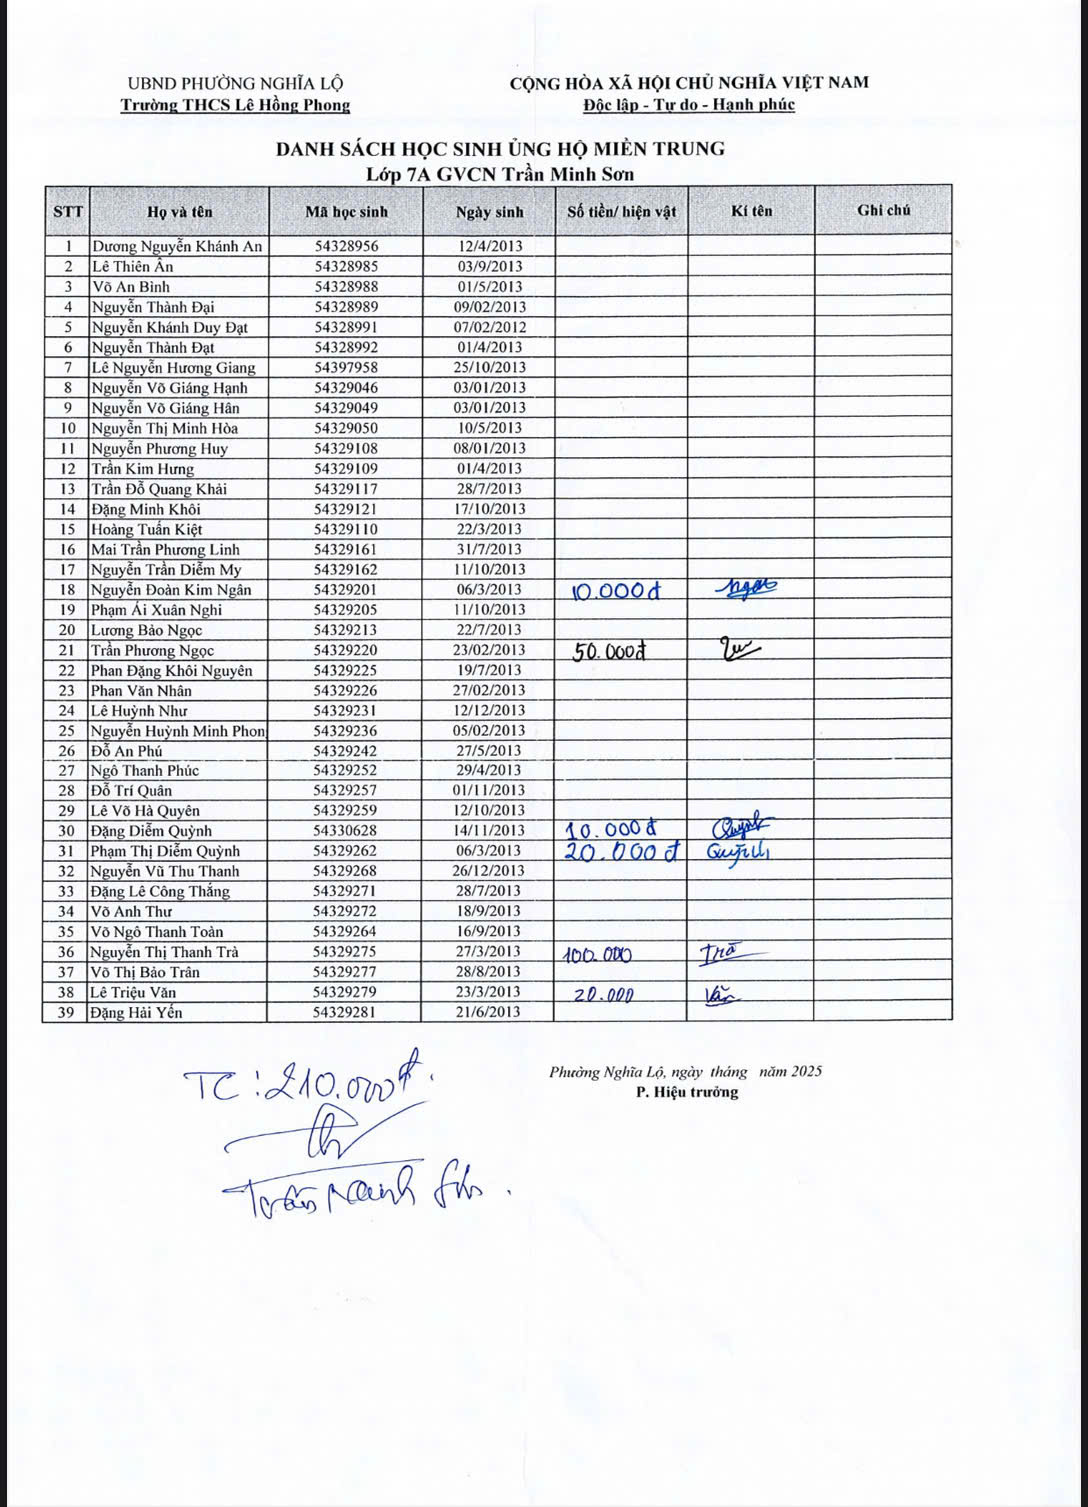 UBND PHƯỜNG NGHĨA LỘ
CỘNG HÒA XÃ HỘI CHỦ NGHĨA VIỆT NAM
Trường THCS Lê Hồng Phong
Độc lập - Tự do - Hạnh phúc
DANH SÁCH HỌC SINH ỦNG HỘ MIỀN TRUNG
Lớp 7A GVCN Trần Minh Sơn
STT Họ và tên Mã học sinh Ngày sinh Số tiền/ hiện vật Kí tên Ghi chú
1 Dương Nguyễn Khánh An 54328956 12/4/2013
2 Lê Thiên Ân 54328985 03/9/2013
3 Võ An Bình 54328988 01/5/2013
4 Nguyễn Thành Đại 54328989 09/02/2013
5 Nguyễn Khánh Duy Đạt 54328991 07/02/2012
6 Nguyễn Thành Đạt 54328992 01/4/2013
7 Lê Nguyễn Hương Giang 54397958 25/10/2013
8 Nguyễn Võ Giáng Hạnh 54329046 03/01/2013
9 Nguyễn Võ Giáng Hân 54329049 03/01/2013
10 Nguyễn Thị Minh Hòa 54329050 10/5/2013
11 Nguyễn Phương Huy 54329108 08/01/2013
12 Trần Kim Hưng 54329109 01/4/2013
13 Trần Đỗ Quang Khải 54329117 28/7/2013
14 Đặng Minh Khôi 54329121 17/10/2013
15 Hoàng Tuấn Kiệt 54329110 22/3/2013
16 Mai Trần Phương Linh 54329161 31/7/2013
17 Nguyễn Trần Diễm My 54329162 11/10/2013
18 Nguyễn Đoàn Kim Ngân 54329201 06/3/2013 10.000đ
19 Phạm Ái Xuân Nghi 54329205 11/10/2013
20 Lương Bảo Ngọc 54329213 22/7/2013
21 Trần Phương Ngọc 54329220 23/02/2013 50.000đ
22 Phan Đặng Khôi Nguyên 54329225 19/7/2013
23 Phan Văn Nhân 54329226 27/02/2013
24 Lê Huỳnh Như 54329231 12/12/2013
25 Nguyễn Huỳnh Minh Phon 54329236 05/02/2013
26 Đỗ An Phú 54329242 27/5/2013
27 Ngô Thanh Phúc 54329252 29/4/2013
28 Đỗ Trí Quân 54329257 01/11/2013
29 Lê Võ Hà Quyên 54329259 12/10/2013
30 Đặng Diễm Quỳnh 54330628 14/11/2013 10.000đ Quỳnh
31 Phạm Thị Diễm Quỳnh 54329262 06/3/2013 20.000đ Quỳnh
32 Nguyễn Vũ Thu Thanh 54329268 26/12/2013
33 Đặng Lê Công Thắng 54329271 28/7/2013
34 Võ Anh Thư 54329272 18/9/2013
35 Võ Ngô Thanh Toàn 54329264 16/9/2013
36 Nguyễn Thị Thanh Trà 54329275 27/3/2013 100.000 Trà
37 Võ Thị Bảo Trân 54329277 28/8/2013
38 Lê Triệu Văn 54329279 23/3/2013 20.000 Văn
39 Đặng Hải Yến 54329281 21/6/2013
Phường Nghĩa Lộ, ngày tháng năm 2025
P. Hiệu trưởng
TC : 210.000đ.
Trần Minh Sơn.